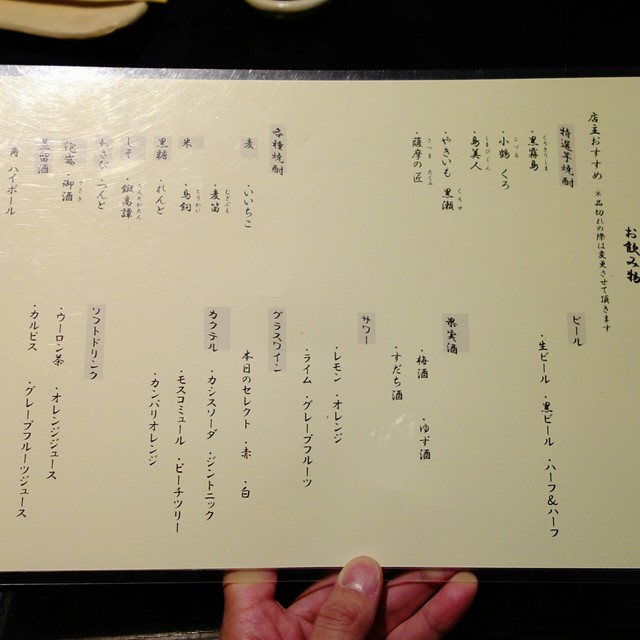 お飲み物
店主おすすめ ※品切れの際は変更させて頂きます
特選芋焼酎
・黒霧島
くろきりしま
・小鶴 くろ
こづる
・島美人
しまびじん
・やきいも 黒瀬
くろせ
・薩摩の匠
さつま たくみ
各種焼酎
麦 ・いいちこ
・麦笛
むぎぶえ
米 ・鳥飼
とりかい
黒糖 ・れんと
しそ ・鍛高譚
たんたかたん
泡盛 ・御酒
うさき
角 ハイボール
ビール
・生ビール ・黒ビール ・ハーフ&ハーフ
果実酒
・梅酒 ・ゆず酒
・すだち酒
サワー
・レモン ・オレンジ
・ライム ・グレープフルーツ
グラスワイン
本日のセレクト ・赤 ・白
カクテル
・カシスソーダ ・ジントニック
・モスコミュール ・ピーチツリー
・カンパリオレンジ
ソフトドリンク
・ウーロン茶 ・オレンジジュース
・カルピス ・グレープフルーツジュース